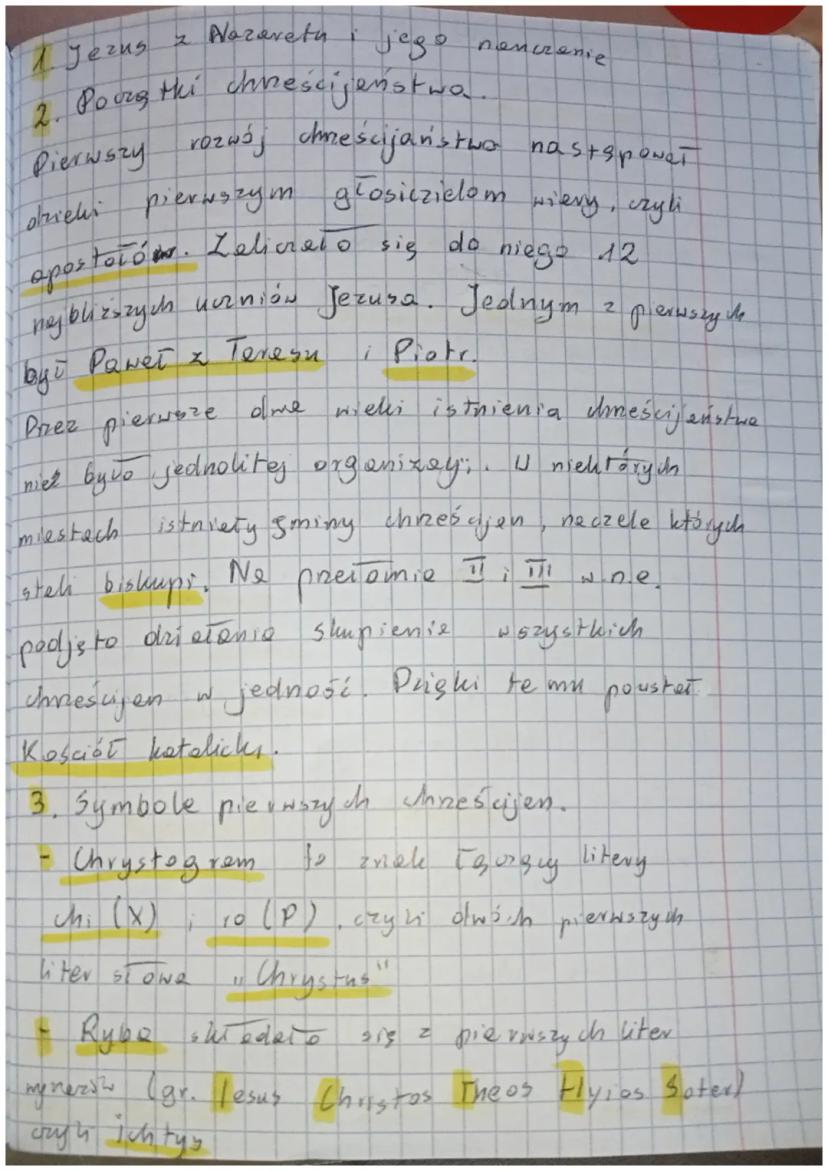 1. Jezus z Nazaretu i jego nauczanie
2. Początki chrześcijaństwa.
Pierwszy rozwój chrześcijaństwa następował
dzięki pierwszym głosiczielom wiary, czyli
apostołów. Zaliczało się do niego 12
najbliższych uczniów Jezusa. Jednym z pierwszych
był Paweł z Taresu i Piotr.
Przez pierwsze dwa wieki istnienia chrześcijaństwa
nie było jednolitej organizacji. U niektórych
miastach istniały gminy chrześcijan, na czele których
stali biskupi. Na przełomie II i III w n.e.
podjęto działania skupienia wszystkich
chrześcijan w jedność. Dzięki temu powstał
Kościół katolicki.
3. Symbole pierwszych chrześcijan.
- Chrystogram to znak łączący litery
chi (X) i ro (P), czyli dwóch pierwszych
liter słowa "Chrystus"
- Ryba składało się z pierwszych liter
wyrazów (gr. Iesus Christos Theos Hyios Soter)
czyli ichtys